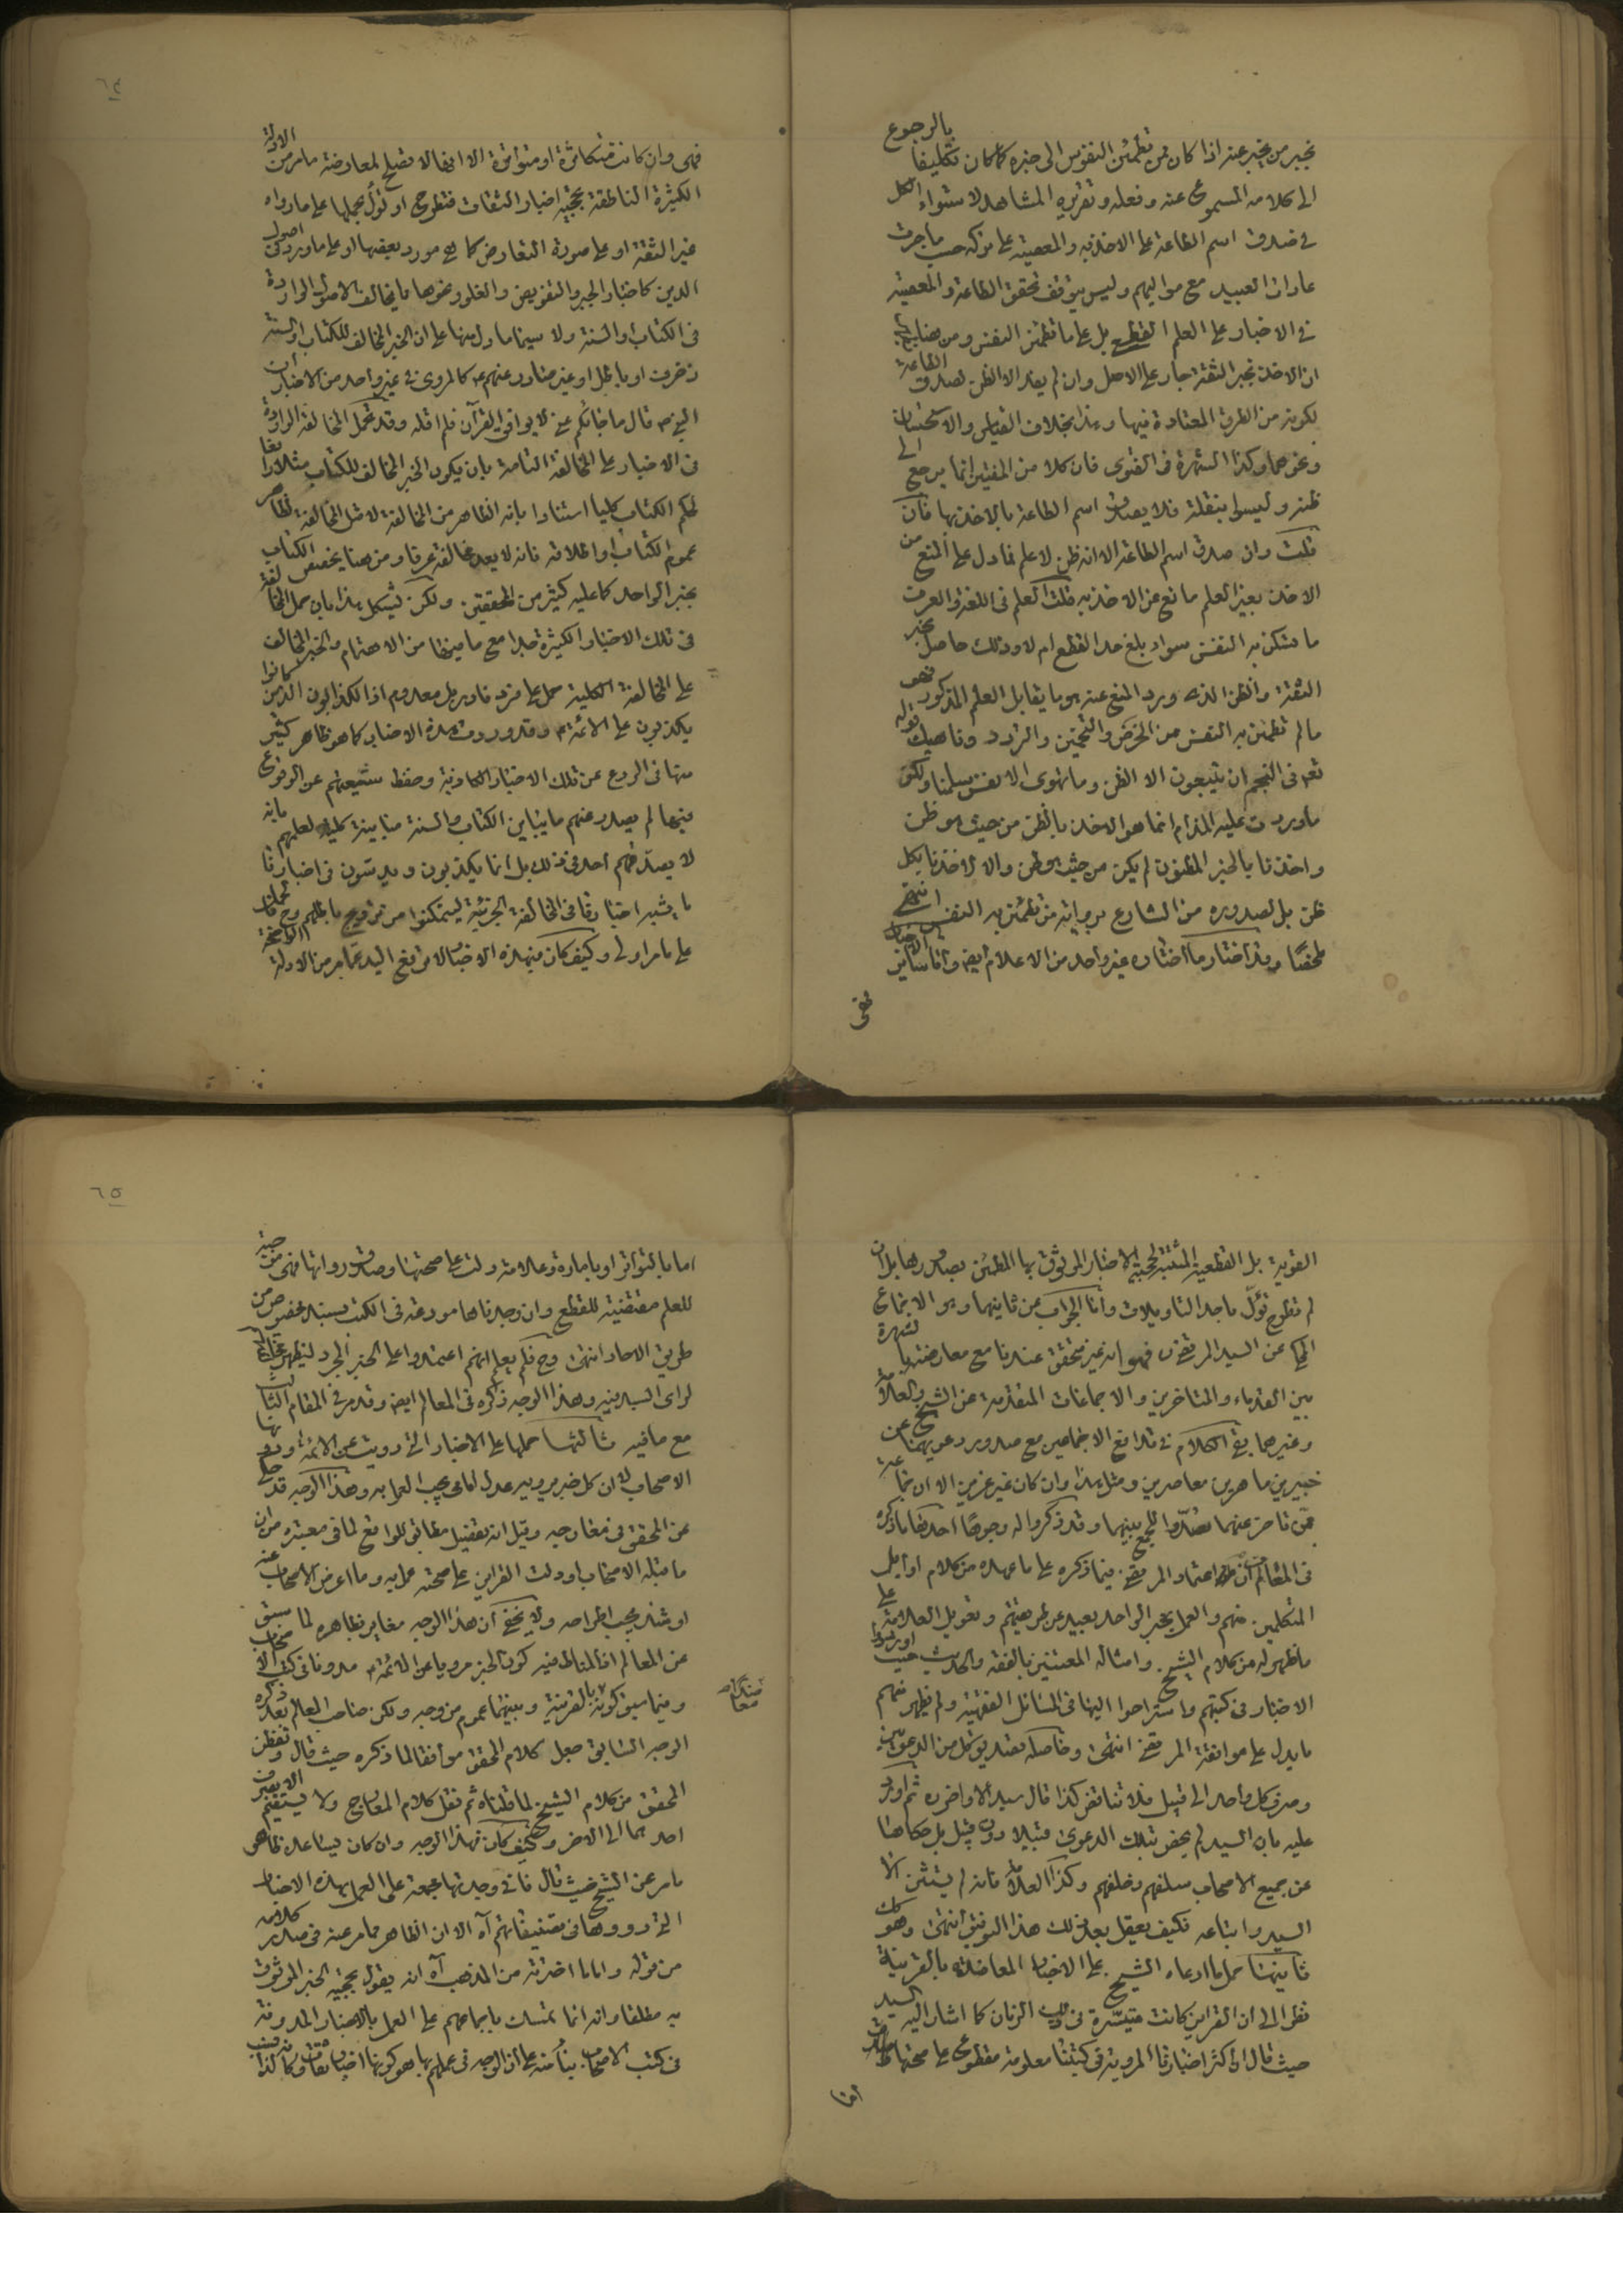 بخبر من يخبر عنه اذا كان ممن تطمئن النفوس الى خبره كما كان تكليفنا بالرجوع
الى كلامه المسموع عنه وفعله وتقريره المشاهد لاستواء الكل
في صدق اسم الطاعة على الاخذ به والمعصية على تركه حسب ما جرت
عادات العبيد مع مواليهم وليس يتوقف تحقق الطاعة والمعصية
في الاخبار على العلم القطعي بل على ما تطمئن النفس ومن هنا
ان الاخذ بخبر الثقة جار على الاصل وان لم يفد الا الظن لصدق الطاعة
لكونه من الطرق المعتادة فيها وهذا بخلاف القياس والاستحسان
ونحوهما وكذا الشهرة في الفتوى فان كلا من المفتين انما يرجع الى
ظنه وليسوا بنقلة فلا يصدق اسم الطاعة بالاخذ بها فان
قلت وان صدق اسم الطاعة الا انه ظن لا علم فما دل على المنع من
الاخذ بغير العلم مانع عن الاخذ به قلت العلم في اللغة والعرف
ما تسكن به النفس سواء بلغ حد القطع ام لا وذلك حاصل بخبر
الثقة والظن الذي ورد المنع عنه هو ما يقابل العلم المذكور فهو
ما لم تطمئن به النفس من الخرص والتخمين والتردد وناهيك قوله
تعه في النجم ان يتبعون الا الظن وما تهوى الانفس سلمنا ولكن
ما وردت عليه المذام انما هو الاخذ بالظن من حيث هو ظن
واخذنا بالخبر المظنون لم يكن من حيث هو ظن والا لاخذنا بكل
ظن بل لصدوره من الشارع برواية من تطمئن به النفس انتهى
ملخصا وقد اختار ما اختاره غير واحد من الاعلام ايضا واما سائر الاخبار
فهى
٦٤
فهى وان كانت متكاثرة او متواترة الا انها لا تصلح لمعارضة ما مر من الادلة
الكثيرة الناطقة بحجية اخبار الثقات فتطرح او تؤل بحملها على ما رواه
غير الثقة او على صورة التعارض كما هي مورد بعضها او على ما ورد في اصول
الدين كاخبار الجبر والتفويض والغلو ونحوها مما يخالف الاصول الواردة
في الكتاب والسنة ولا سيما ما دل منها على ان الخبر المخالف للكتاب والسنة
زخرف او باطل او غير صادر عنهم ع كالمروى في غير واحد من الاخبار ان
النبي ص قال ما جائكم عني لا يوافق القرآن فلم اقله وقد تحمل المخالفة الواردة
في الاخبار على المخالفة التامة بان يكون الخبر المخالف للكتاب مثلا رافعا
لحكم الكتاب كليا استنادا بانه الظاهر من المخالفة لا مثل المخالفة لظاهر
عموم الكتاب او اطلاقه فانه لا يعد مخالفة عرفا ومن هنا يخصص الكتاب
بخبر الواحد كما عليه كثير من المحققين ولكن يشكل هذا بان حمل المخالفة
في تلك الاخبار الكثيرة جدا مع ما فيها من الاهتمام والخبر المخالف
على المخالفة الكلية حمل على فرد نادر بل معدوم اذ الكذابون الذين كانوا
يكذبون على الائمة ع وقد وردت هذه الاخبار كما هو ظاهر كثير
منها في الردع عن تلك الاخبار الكاذبة وحفظ شيعتهم عن الوقوع
فيها لم يصدر عنهم ما يباين الكتاب والسنة مباينة كلية لعلمهم بانه
لا يصدقهم احد في ذلك بل انما يكذبون ويدسون في اخبارنا
ما يشبه اخبارنا في المخالفة الجزئية ليتمكنوا من ترويج باطلهم وح فحملها
على ما مر اولى وكيف كان فهذه الاخبار لا ترفع اليد عما مر من الادلة الواضحة
القوية بل القطعية المثبتة لحجية الاخبار الموثوق بها المطمئن بصدورها بل ان
لم تطرح تؤل باحد التاويلات واما الجواب عن ثانيهما وهو الاجماع
المحكى عن السيد المرتضى فهو انه غير متحقق عندنا مع معارضتها لشهرة
بين القدماء والمتاخرين والاجماعات المتقدمة عن الشيخ والعلامة
وغيرهما بقى الكلام في تدافع الاجماعين مع صدور دعويهما عن
خبيرين ماهرين معاصرين ومثل هذا وان كان غير عزيز الا ان جماعة
ممن تاخر عنهما تصدوا للجمع بينهما وقد ذكروا له وجوها احدها ما ذكره
في المعالم ان اعتماد المرتضى فيما ذكره على ما عهده من كلام اوايل
المتكلمين منهم والعمل بخبر الواحد بعيد عن طريقتهم وتعويل العلامة على
ما ظهر له من كلام الشيخ وامثاله المعتنين بالفقه والحديث حيث اوردوا
الاخبار في كتبهم واستراحوا اليها في المسائل الفقهية ولم يظهر منهم
ما يدل على موافقة المرتضى انتهى وحاصله تصديق كل من الدعويين
وصرف كل واحد الى قبيل فلا تناقض كذا قال سيد الاواخر ره ثم اورد
عليه بان السيد لم يخص بتلك الدعوى قبيلا دون قبيل بل حكاها
عن جميع الاصحاب سلفهم وخلفهم وكذا العلامة فانه لم يستثن الا
السيد واتباعه فكيف يعقل بعد ذلك هذا التوفيق انتهى وهو كك
ثانيهما حمل ما ادعاه الشيخ على الاخبار المعاضدة بالقرينة
نظرا الى ان القراين كانت متيسرة في ذلك الزمان كما اشار اليه السيد
حيث قال ان اكثر اخبارنا المروية في كتبنا معلومة مقطوع على صحتها
اما
٦٥
اما بالتواتر او بامارة وعلامة دلت على صحتها وصدق رواتها فهى موجبة
للعلم مقتضية للقطع وان وجدناها مودعة في الكتب بسند مخصوص من
طريق الاحاد انتهى وح فلم يعلم انهم اعتمدوا على الخبر المجرد ليظهر مخالفتهم
لراى السيد فيه وهذا الوجه ذكره في المعالم ايضا وقد مر في المقام الثالث
مع ما فيه ثالثها حملها على الاخبار التي رويت عن الائمة ودونها
الاصحاب لا ان كل خبر يرويه عدل امامي يجب العمل به وهذا الوجه قد حكى
عن المحقق في معارجه وقيل انه تفصيل مطابق للواقع لما في معتبره من ان
ما قبله الاصحاب او دلت القراين على صحته عمل به وما اعرض الاصحاب عنه
او شذ يجب اطراحه ولا يخفى ان هذا الوجه مغاير بظاهره لما سبق
عن المعالم اذ المناط فيه كون الخبر مرويا عن الائمة ع مدونا في كتب الاصحاب
وفيما سبق كونه بالقرينة وبينهما عموم من وجه ولكن صاحب المعالم بعد ذكره
الوجه السابق جعل كلام المحقق موافقا لما ذكره حيث قال وتفطن
المحقق من كلام الشيخ لما قلناه ثم نقل كلام المعارج ولا يستقيم الا بصرف
احدهما الى الاخر وكيف كان فهذا الوجه وان كان يساعده ظاهر
ما مر عن الشيخ حيث قال فاني وجدتها مجمعة على العمل بهذه الاخبار
التي رووها في تصنيفاتهم آه الا ان الظاهر مما مر عنه في صدر كلامه
من قوله واما ما اخترته من المذهب آه انه يقول بحجية الخبر الموثوق
به مطلقا وانه انما تمسك باجماعهم على العمل بالاخبار المدونة
في كتب الاصحاب بناء منه على ان الوجه في عملهم بها هو كونها اخبار ثقات